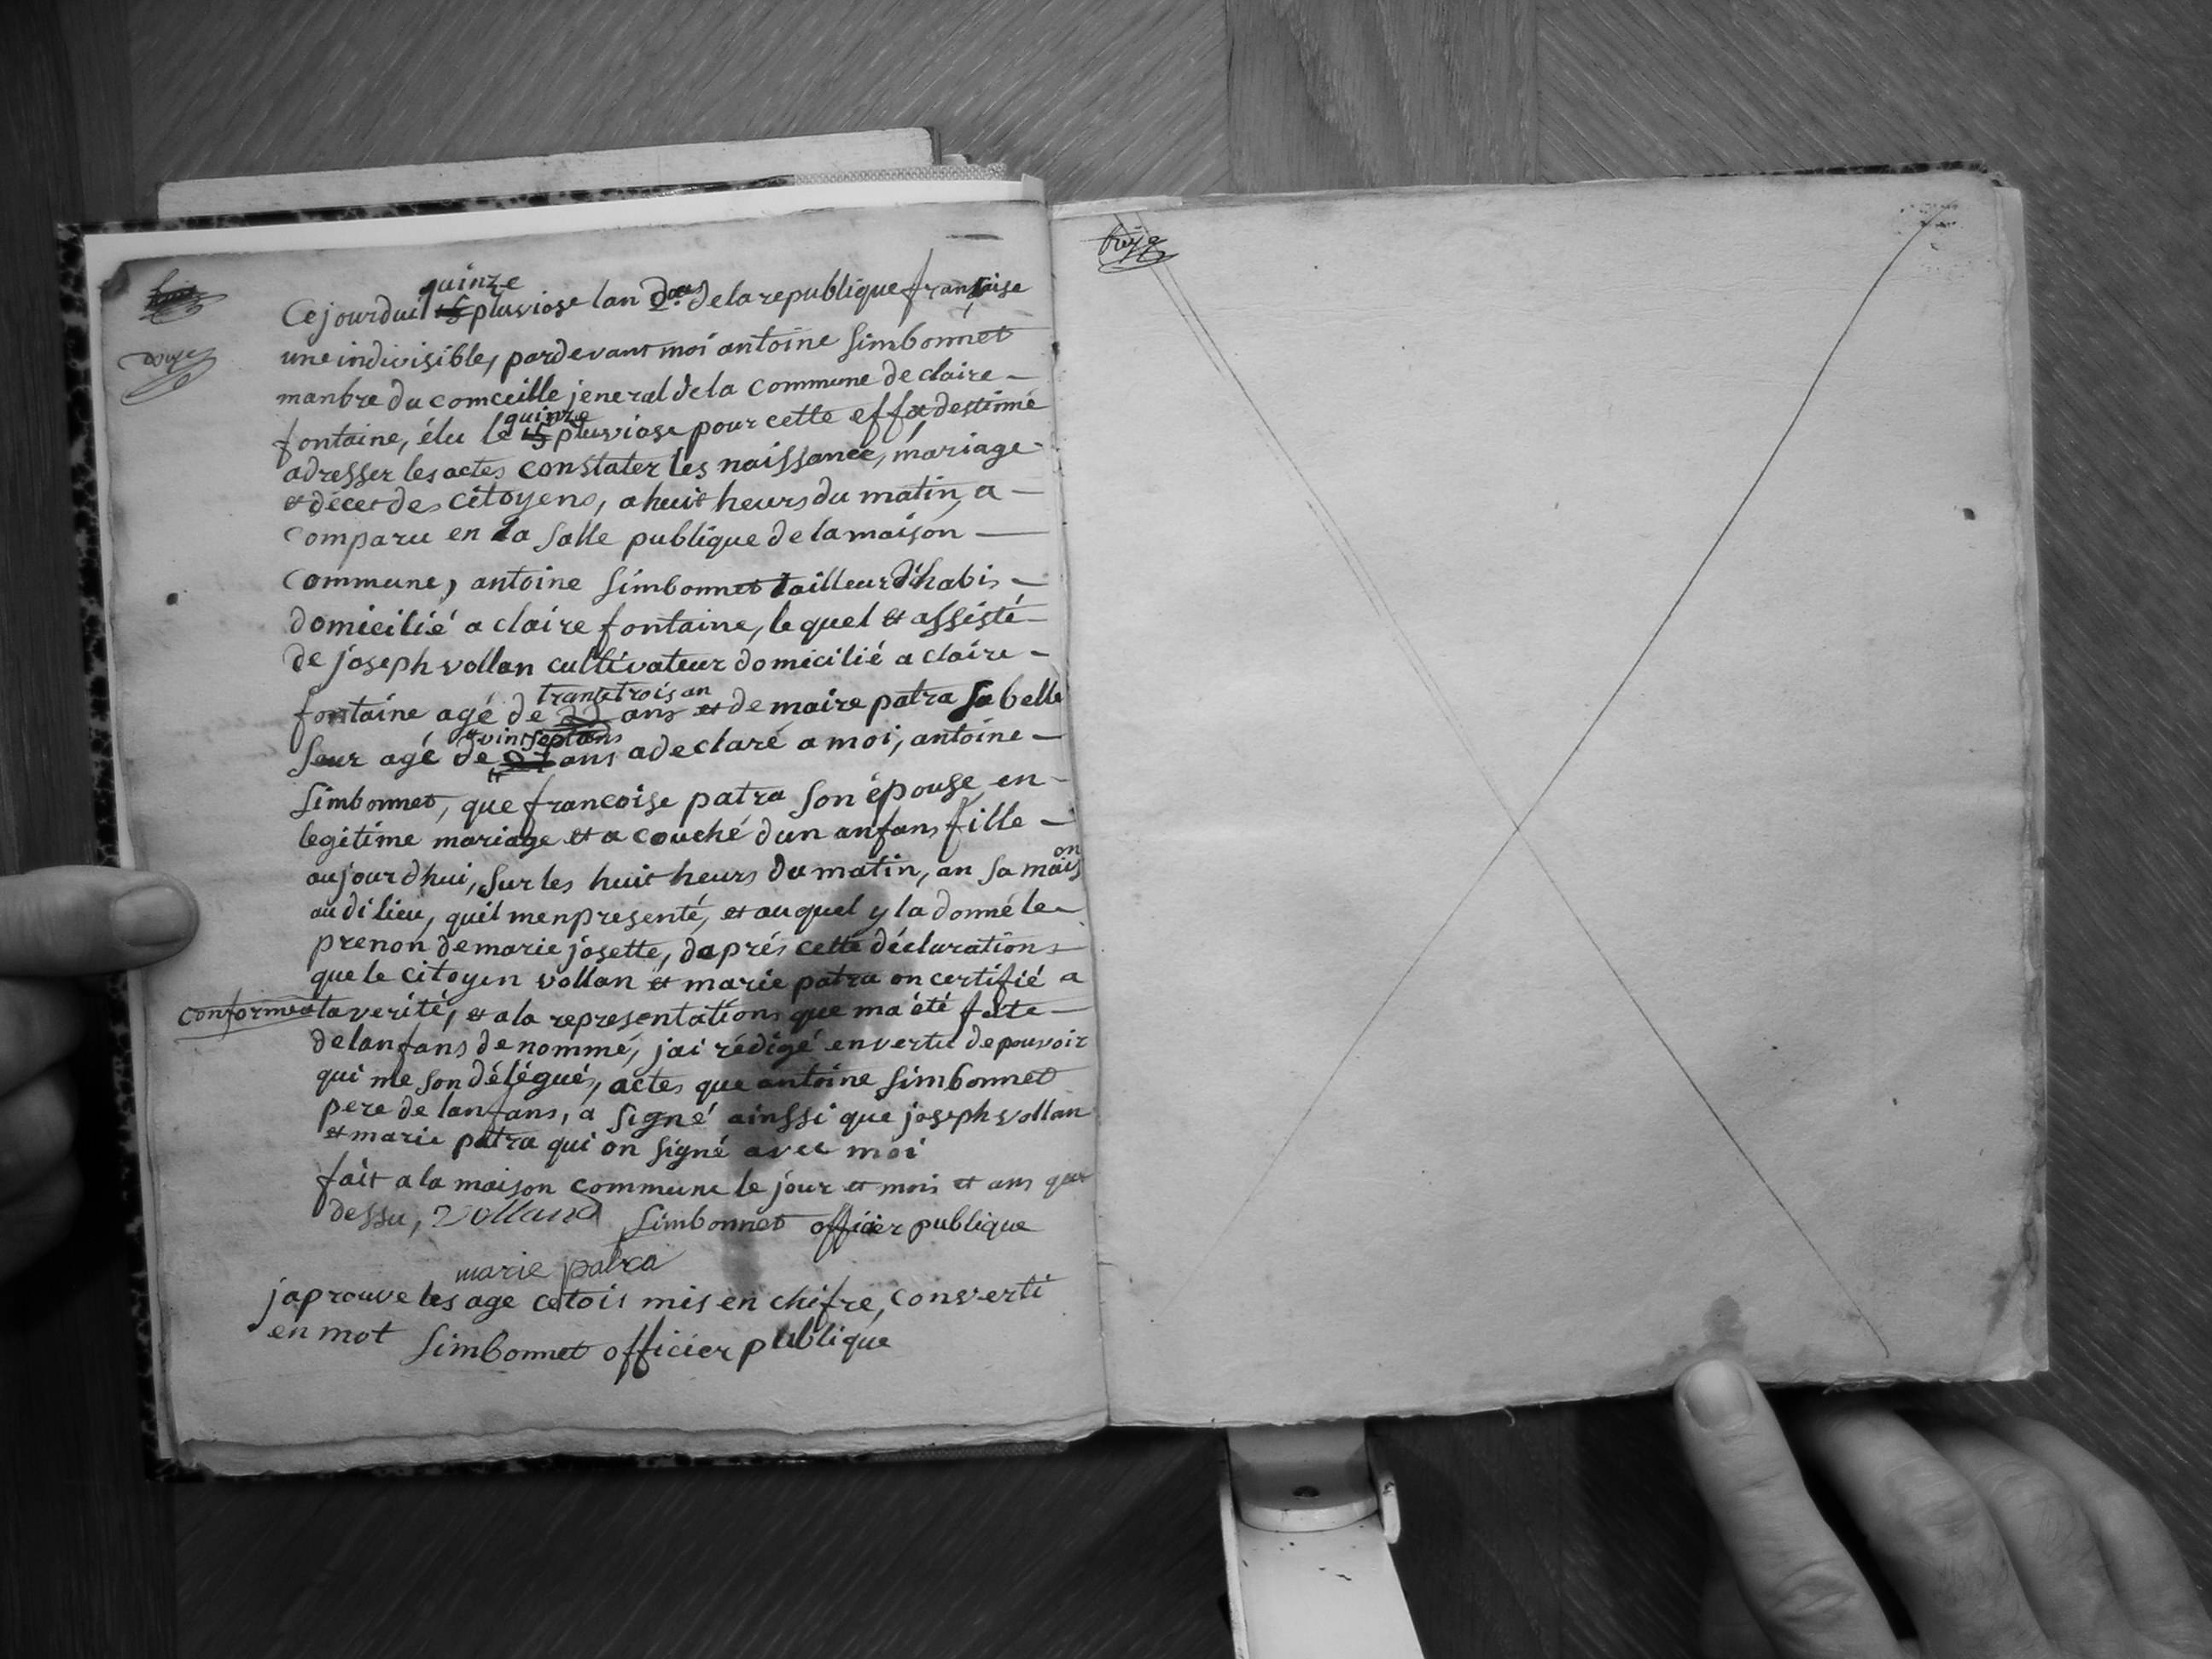 douze
quinze
Cejourdui 15 pluviose lan 2.e delarepublique fransaise
uneindivisible, pardevant moi antoine simbonnet
manbre du comceille jeneral de la commune de claire-
quinze
fontaine, élu le 15 pluviose pour cette effet destimé
adresser les actes constater les naissance, mariage
et décet des citoyens, a huit heurs du matin, a
comparu en la salle publique de la maison
commune, antoine simbonnet tailleur d'habis
domicilié a claire fontaine, le quel et assisté
de joseph vollan cultivateur domicilié a claire-
trantetrois an
fontaine agé de 33 ans et de maire patra sa belle
vintseptans
seur agé de 27 ans adeclaré a moi, antoine
simbonnet, que francoise patra son épouse en
legitime mariage et a couché dun anfans fille
on
aujourdhui, sur les huit heurs du matin, an sa mais
audi lieu, quil menpresenté, et auquel y la donné le
prenon de marie josette, daprés cette déclarations
que le citoyen vollan et marie patra on certifié a
conforme a la verité, et a la representations que ma été faite
delanfans denommé, jai rédigé envertu depouvoir
qui me son délégués, actes que antoine simbonnet
pere de lanfans, a signé ainssi que joseph vollan
et marie patra qui on signé avec moi
fait a la maison commune le jour et mois et ans que
dessu, Volland simbonnet officier publique
marie patra
japrouve les age cetois mis en chifre, converti
en mot simbonnet officier publique
treize